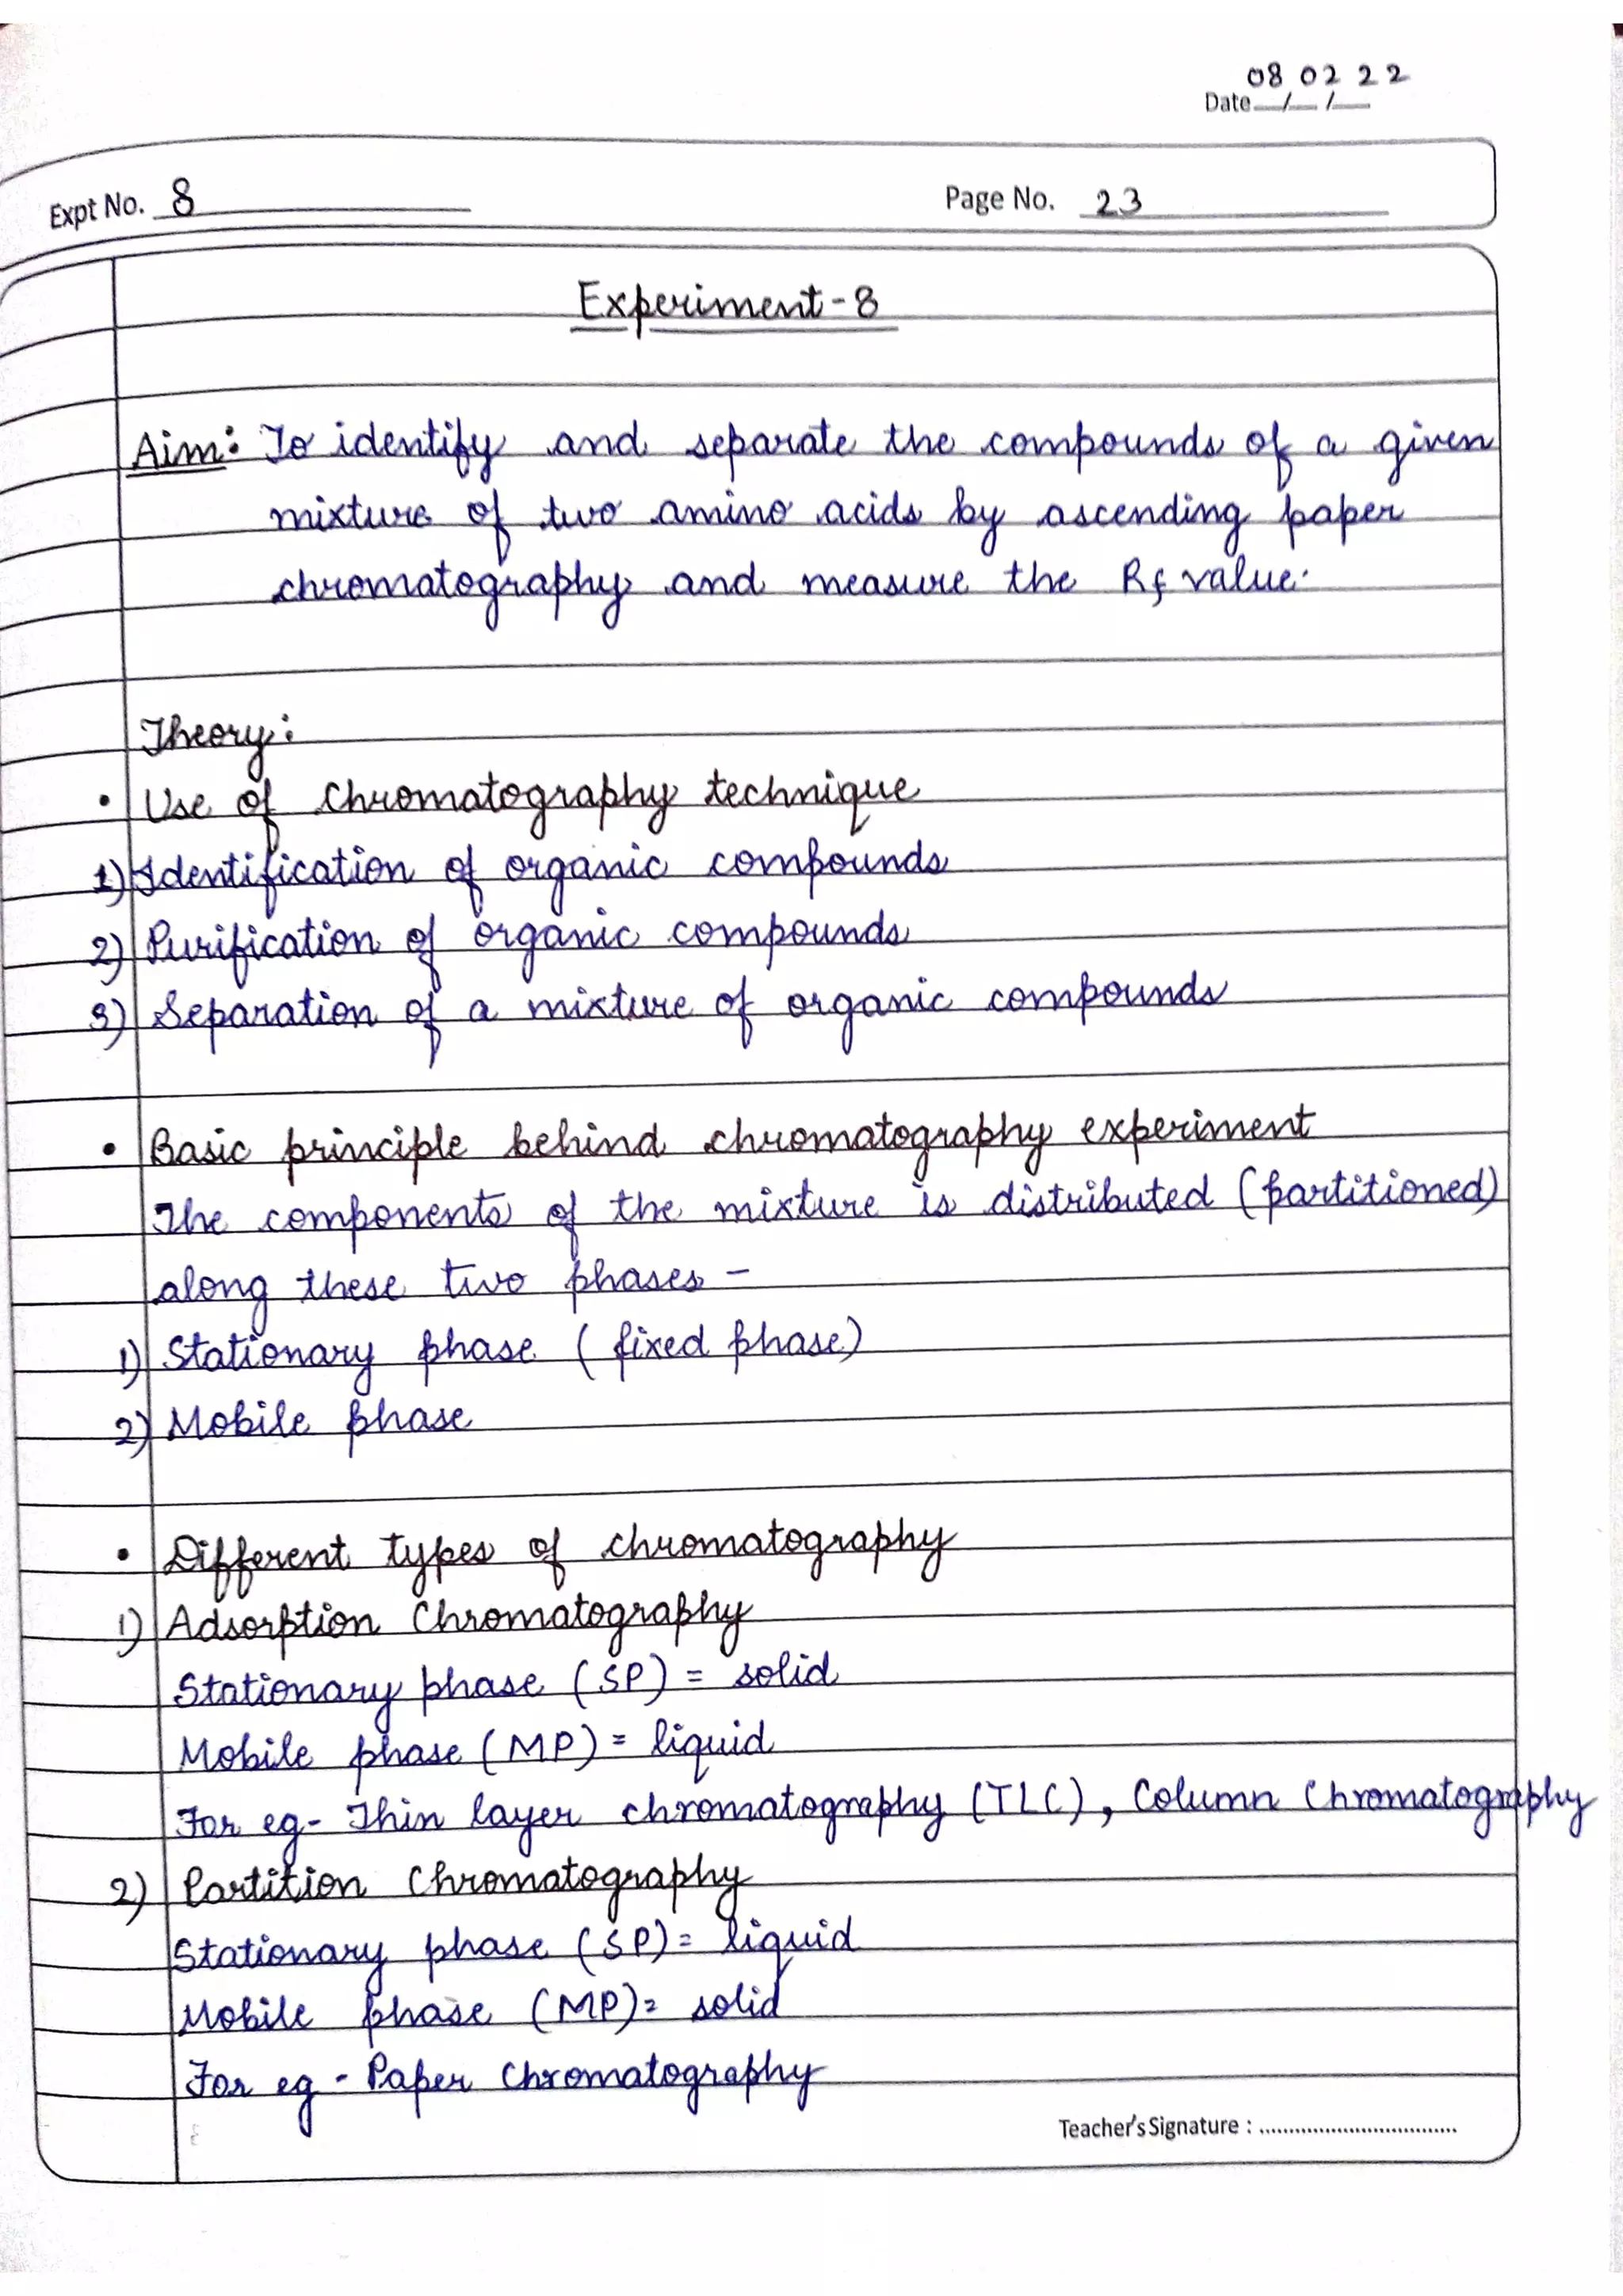 08 02 22
Date __/__/__
Expt No. 8
Page No. 23
Experiment-8
Aim: To identify and separate the compounds of a given
mixture of two amino acids by ascending paper
chromatography and measure the Rf value.
Theory:
• Use of Chromatography technique
1) Identification of organic compounds
2) Purification of organic compounds
3) Separation of a mixture of organic compounds
• Basic principle behind chromatography experiment
The components of the mixture is distributed (partitioned)
along these two phases -
1) Stationary phase (fixed phase)
2) Mobile phase
• Different types of chromatography
1) Adsorption Chromatography
Stationary phase (SP) = solid
Mobile phase (MP) = liquid
For eg- Thin layer chromatography (TLC), Column Chromatography
2) Partition Chromatography
Stationary phase (SP) = liquid
Mobile phase (MP) = solid
For eg - Paper Chromatography
Teacher's Signature : ..................................